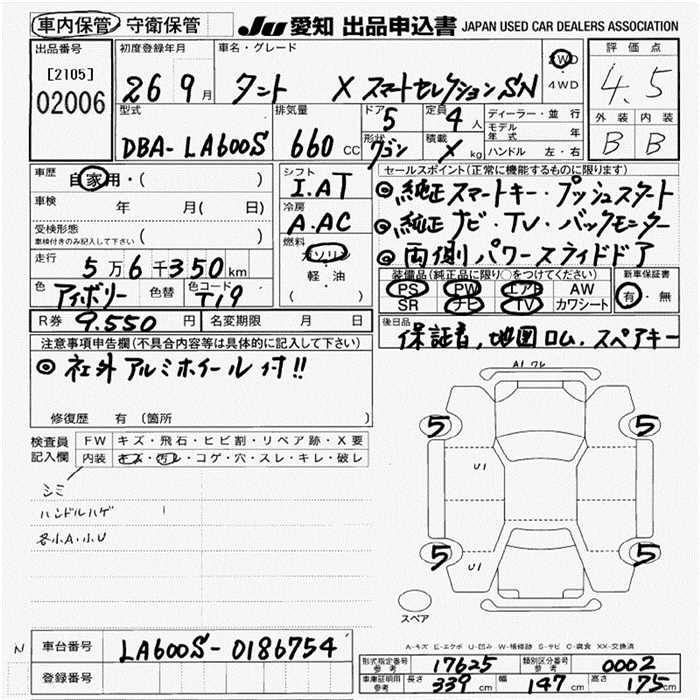 車内保管 守衛保管 JU 愛知 出品申込書 JAPAN USED CAR DEALERS ASSOCIATION
出品番号 初度登録年月 車名・グレード 評価点
[2105] 02006 26 9月 タント X スマートセレクションSN 2WD ・ 4WD 4.5
型式 排気量 ドア 定員 ディーラー・並行 外装 内装
DBA-LA600S 660 CC 5 4人 モデル年式 年 B B
形状 ワゴン 積載 X kg ハンドル 左・右
車歴 自家用・( ) シフト I.AT セールスポイント(正常に機能するものに限ります)
車検 年 月( 日) 冷房 A.AC ◎純正スマートキー・プッシュスタート
受検形態 車検付きのみ記入して下さい ( ) ◎純正ナビ・TV・バックモニター
走行 5万6千350km 燃料 ガソリン 軽・油 ( ) ◎両側パワースライドドア
色 アイボリー 色替 色コード T19 装備品(純正品に限り○をつけてください) 新車保証書
PS PW エアB AW 有・無
SR ナビ TV カワシート
R券 9.550円 名変期限 月 日 後日品
保証書,地図ロム.スペアキー
注意事項申告欄(不具合内容等は具体的に記入して下さい)
◎社外アルミホイール付!!
修復歴 有 (箇所 )
検査員記入欄 FW キズ・飛石・ヒビ割・リペア跡・X要
内装 キズ・汚レ・コゲ・穴・スレ・キレ・破レ
シミ
ハンドルハゲ
各小A.小U
A1 ワレ
5 5
U1
5 5
U1
スペア
A-キズ E-エクボ U-凹み W-補修跡 S-サビ C-腐食 XX-交換済
N 車台番号 LA600S-0186754
登録番号
形式指定番号 参考 17625 類別区分番号 参考 0002
車庫証明用 参考 長さ 339cm 幅 147cm 高さ 175cm